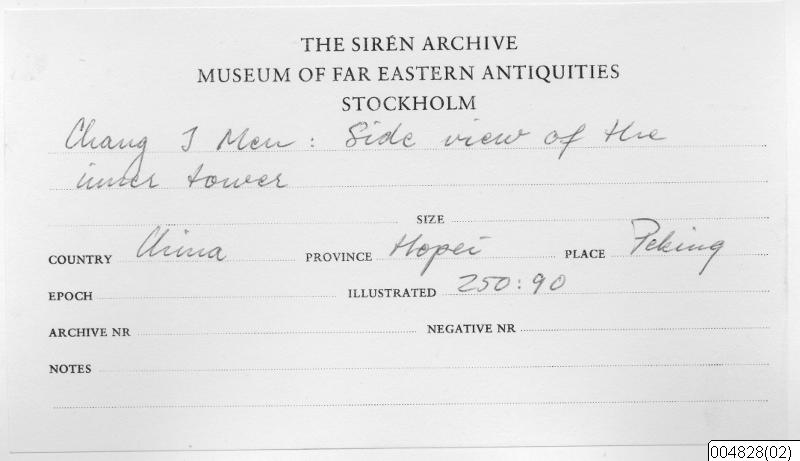 THE SIRÉN ARCHIVE
MUSEUM OF FAR EASTERN ANTIQUITIES
STOCKHOLM
Chang I Men: Side view of the
inner tower
SIZE
COUNTRY China PROVINCE Hopei PLACE Peking
EPOCH ILLUSTRATED 250:90
ARCHIVE NR NEGATIVE NR
NOTES
004828(02)